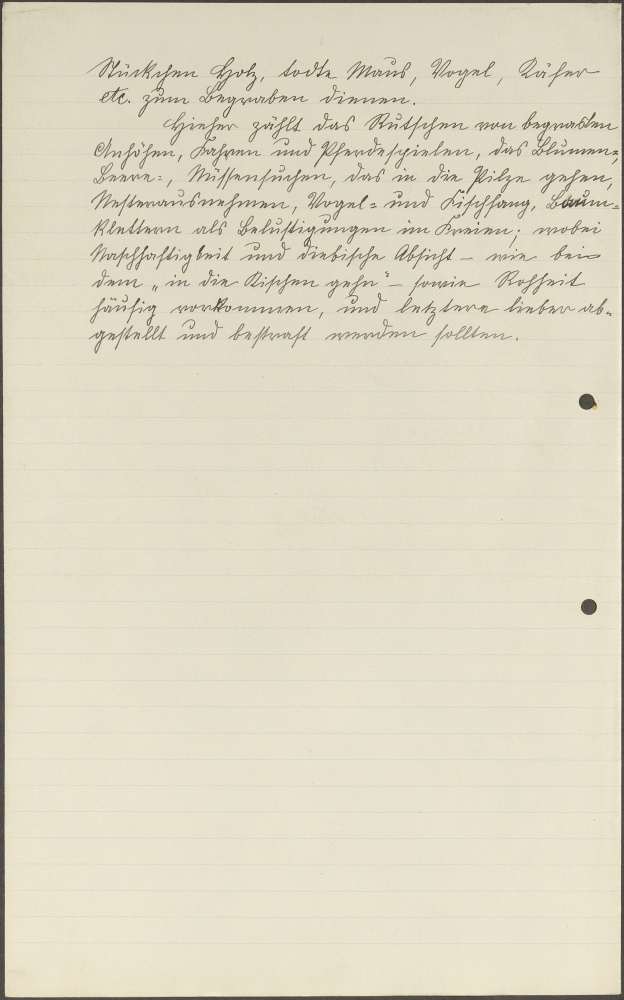 Stückchen Holz, todte Maus, Vogel, Käfer
etc. zum Begraben dienen.
Hieher zählt das Rutschen von begrasten
Anhöhen, Fahren und Pferdespielen, das Blumen-,
Beere-, Nüssensuchen, das in die Pilze gehen,
Nesterausnehmen, Vogel- und Fischfang, Baum-
klettern als Belustigungen im Freien; wobei
Naschhaftigkeit und diebische Absicht - wie bei
dem „in die Kischen gehn" - sowie Rohheit
häufig vorkommen, und letztere lieber ab-
gestellt und bestraft werden sollten.